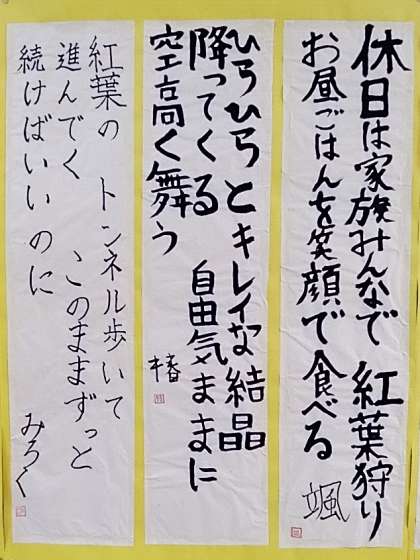 休日は家族みんなで 紅葉狩り
お昼ごはんを笑顔で食べる
颯
ひらひらとキレイな結晶
降ってくる 自由気ままに
空高く舞う
椿
紅葉の トンネル歩いて
進んでく このままずっと
続けばいいのに
みろく